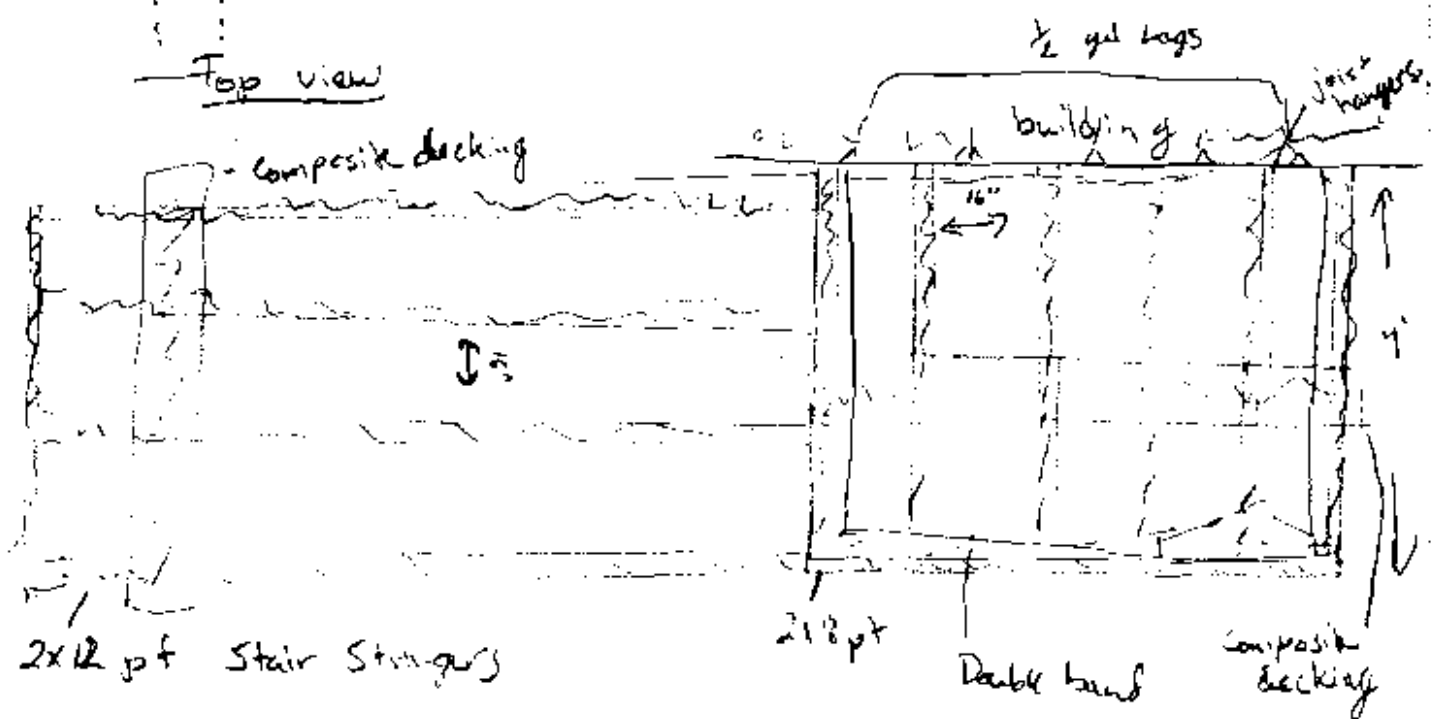 Top view
½ gal lags
joist hangers
building
composite decking
16"
4'
2x12 pt Stair Stringers
2x8 pt
Double band
composite decking